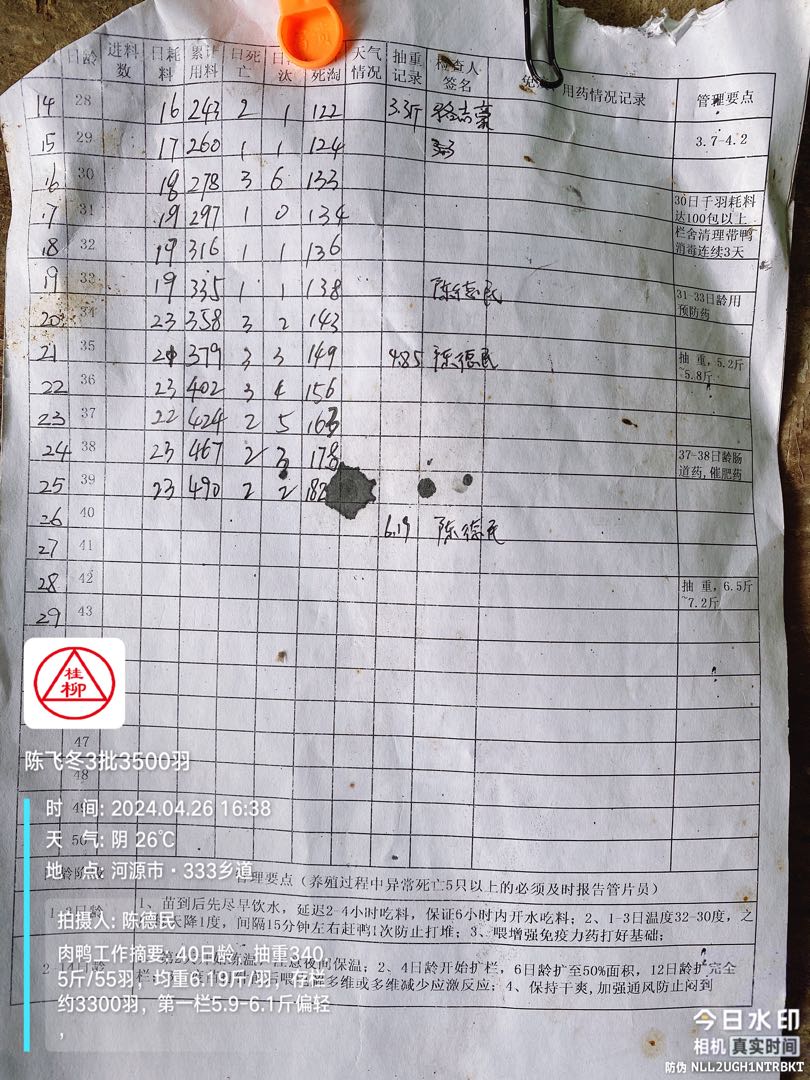 日龄 进料数 日耗料 累计用料 日死亡 日 汰 死淘 天气情况 抽重记录 检查人签名 用药情况记录 管理要点
14 28 16 243 2 1 122 3.3斤
15 29 17 260 1 1 124 3.7-4.2
16 30 18 278 3 6 133
17 31 19 297 1 0 134 30日千羽耗料达100包以上
18 32 19 316 1 1 136 栏舍清理带鸭消毒连续3天
19 33 19 335 1 1 138 陈德民 31-33日龄用预防药
20 34 23 358 3 2 143
21 35 21 379 3 3 149 4.85 陈德民 抽 重，5.2斤~5.8斤
22 36 23 402 3 4 156
23 37 22 424 2 5 163
24 38 23 467 2 3 178 37-38日龄肠道药,催肥药
25 39 23 490 2 2 182
26 40 6.19 陈德民
27 41
28 42 抽 重，6.5斤~7.2斤
29 43
桂柳
47
陈飞冬3批3500羽
48
时 间: 2024.04.26 16:38
49
天 气: 阴 26℃
50
地 点: 河源市·333乡道
管理要点（养殖过程中异常死亡5只以上的必须及时报告管片员）
日龄 1、苗到后先尽早饮水，延迟2-4小时吃料，保证6小时内开水吃料；2、1-3日温度32-30度，之
天降1度，间隔15分钟左右赶鸭1次防止打堆；3、喂增强免疫力药打好基础；
拍摄人: 陈德民
肉鸭工作摘要: 40日龄，抽重340.5斤/55羽；均重6.19斤/羽，存栏约3300羽，第一栏5.9-6.1斤偏轻，
夜间保温；2、4日龄开始扩栏，6日龄扩至50%面积，12日龄扩完全
多维或多维减少应激反应；4、保持干爽,加强通风防止闷到
今日水印
相机 真实时间
防伪 NLL2UGH1NTRBKT